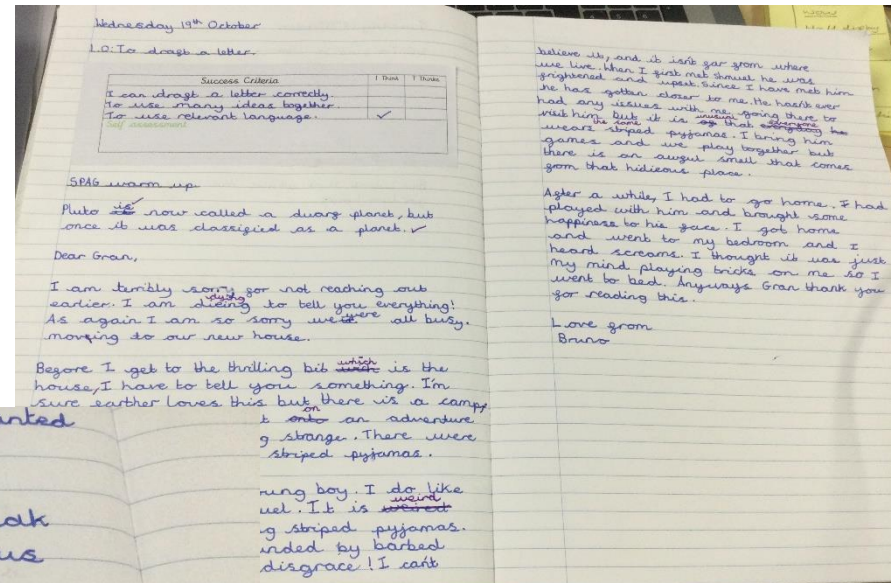 Wednesday 19th October
L.O: To dragt a letter.
Success Criteria
I Think
T Thinks
I can dragt a letter correctly.
To use many ideas together.
To use relevant language. ✓
Self assessment
SPAG warm up.
Pluto is now called a dwarg planet, but
once it was classigied as a planet. ✓
Dear Gran,
I am terribly sorry gor not reaching out
earlier. I am dieing dying to tell you everything!
As again I am so sorry were all busy.
moving to our new house.
Begore I get to the thrilling bit which is the
house, I have to tell you something. I'm
sure earther loves this but there is a camp,
t onto on an adventure
g strange. There were
striped pyjamas.
rung boy. I do like
uel. It is weired weird
g striped pyjamas.
unded by barbed
disgrace! I can't
believe it, and it isn't gar grom where
we live. When I girst met Shmuel he was
grightened and upset. Since I have met him
he has gotten closer to me. He hasn't ever
had any issues with me going there to
visit him, but it is unusual that everyone
wears the same striped pyjamas. I bring him
games and we play together but
there is an awgul smell that comes
grom that hidieous place.
Agter a while, I had to go home. I had
played with him and brought some
happiness to his gace. I got home
and went to my bedroom and I
heard screams. I thought it was just
my mind playing tricks on me so I
went to bed. Anyways Gran thank you
gor reading this.
Love grom
Bruno
anted
us
now